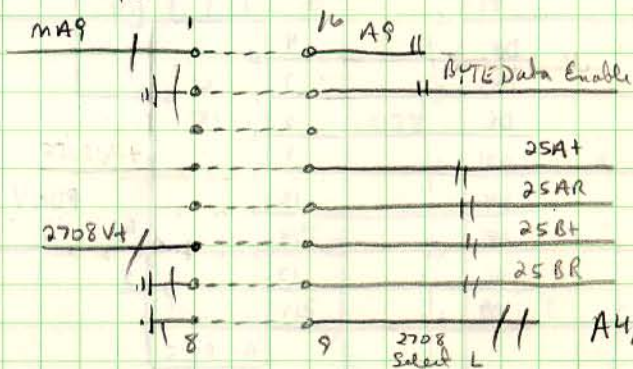 MA9 1 16 A9
BYTE Data Enable
25A+
25AR
2708V+ 25B+
25BR
8 9 2708 A4,
Select L